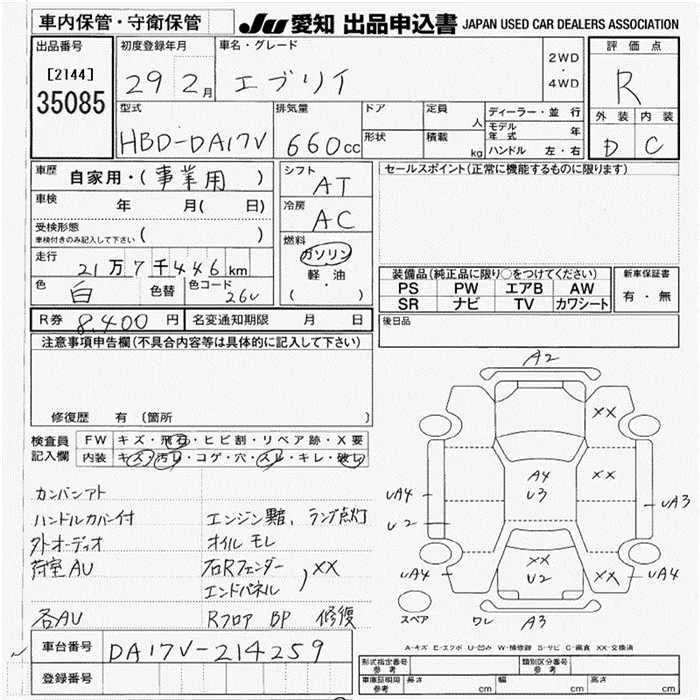 車内保管・守衛保管
JU 愛知 出品申込書 JAPAN USED CAR DEALERS ASSOCIATION
出品番号
[2144]
35085
初度登録年月
29 2月
車名・グレード
エブリイ
2WD
・
4WD
評価点
R
外装 内装
D C
型式
HBD-DA17V
排気量
660cc
ドア
形状
定員
人
積載
kg
ディーラー・並行
モデル年式 年
ハンドル 左・右
車歴
自家用・(事業用)
車検
年 月( 日)
受検形態
車検付きのみ記入して下さい ( )
走行
21万7千446km
色
白
色替
色コード
26U
シフト
AT
冷房
AC
燃料
ガソリン
軽油
( ・ )
セールスポイント(正常に機能するものに限ります)
装備品(純正品に限り〇をつけてください)
PS PW エアB AW
SR ナビ TV カワシート
新車保証書
有・無
R券 8,400円
名変通知期限 月 日
後日品
注意事項申告欄(不具合内容等は具体的に記入して下さい)
修復歴 有 (箇所
検査員記入欄
FW キズ・飛石・ヒビ割・リペア跡・X要
内装 キズ・汚れ・コゲ・穴・スレ・キレ・破れ
カンバンアト
ハンドルカバー付
外オーディオ
荷室AU
各AU
エンジン異音、ランプ点灯
オイルモレ
右Rフェンダー
エンドパネル , XX
Rフロア BP 修復
A2
XX
A4
U3
XX
UA4
U2
UA3
XX
U2
UA4
XX
UA4
スペア
ワレ
A3
A-キズ E-エクボ U-凹み W-補修跡 S-サビ C-腐食 XX-交換済
車台番号 DA17V-214259
登録番号
形式指定番号 参考
類別区分番号 参考
車庫証明用 参考
長さ cm
幅 cm
高さ cm